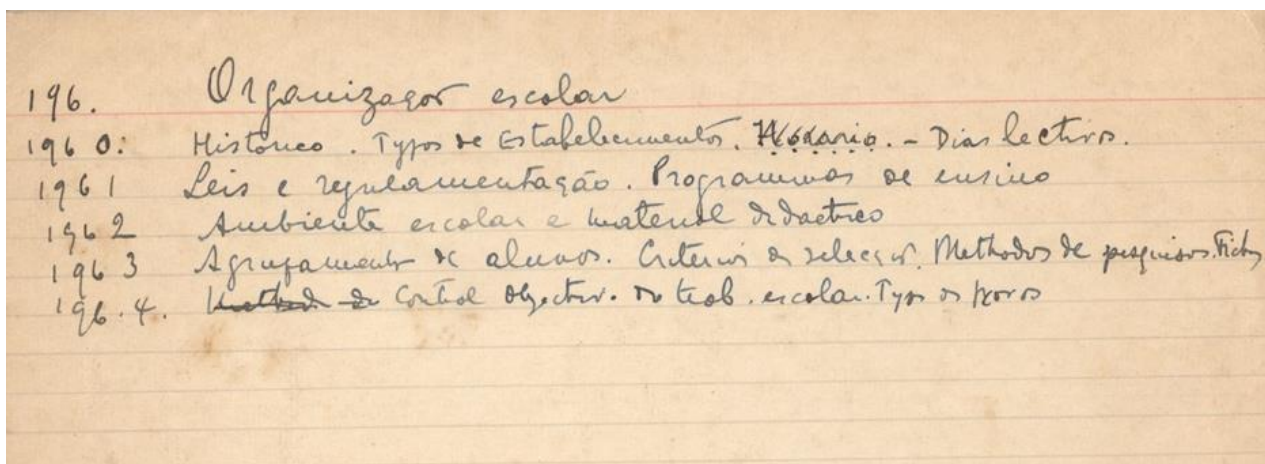 196. Organização escolar
1960: Historico. Typos de Estabelecimentos. Horario. - Dias lectivos.
1961 Leis e regulamentação. Programmas de ensino
1962 Ambiente escolar e material didactico
1963 Agrupamento de alunos. Criterios de selecção. Methodos de pesquisas. Fichas
196.4. Methodo de Control objectivo do trab. escolar. Typos de provas